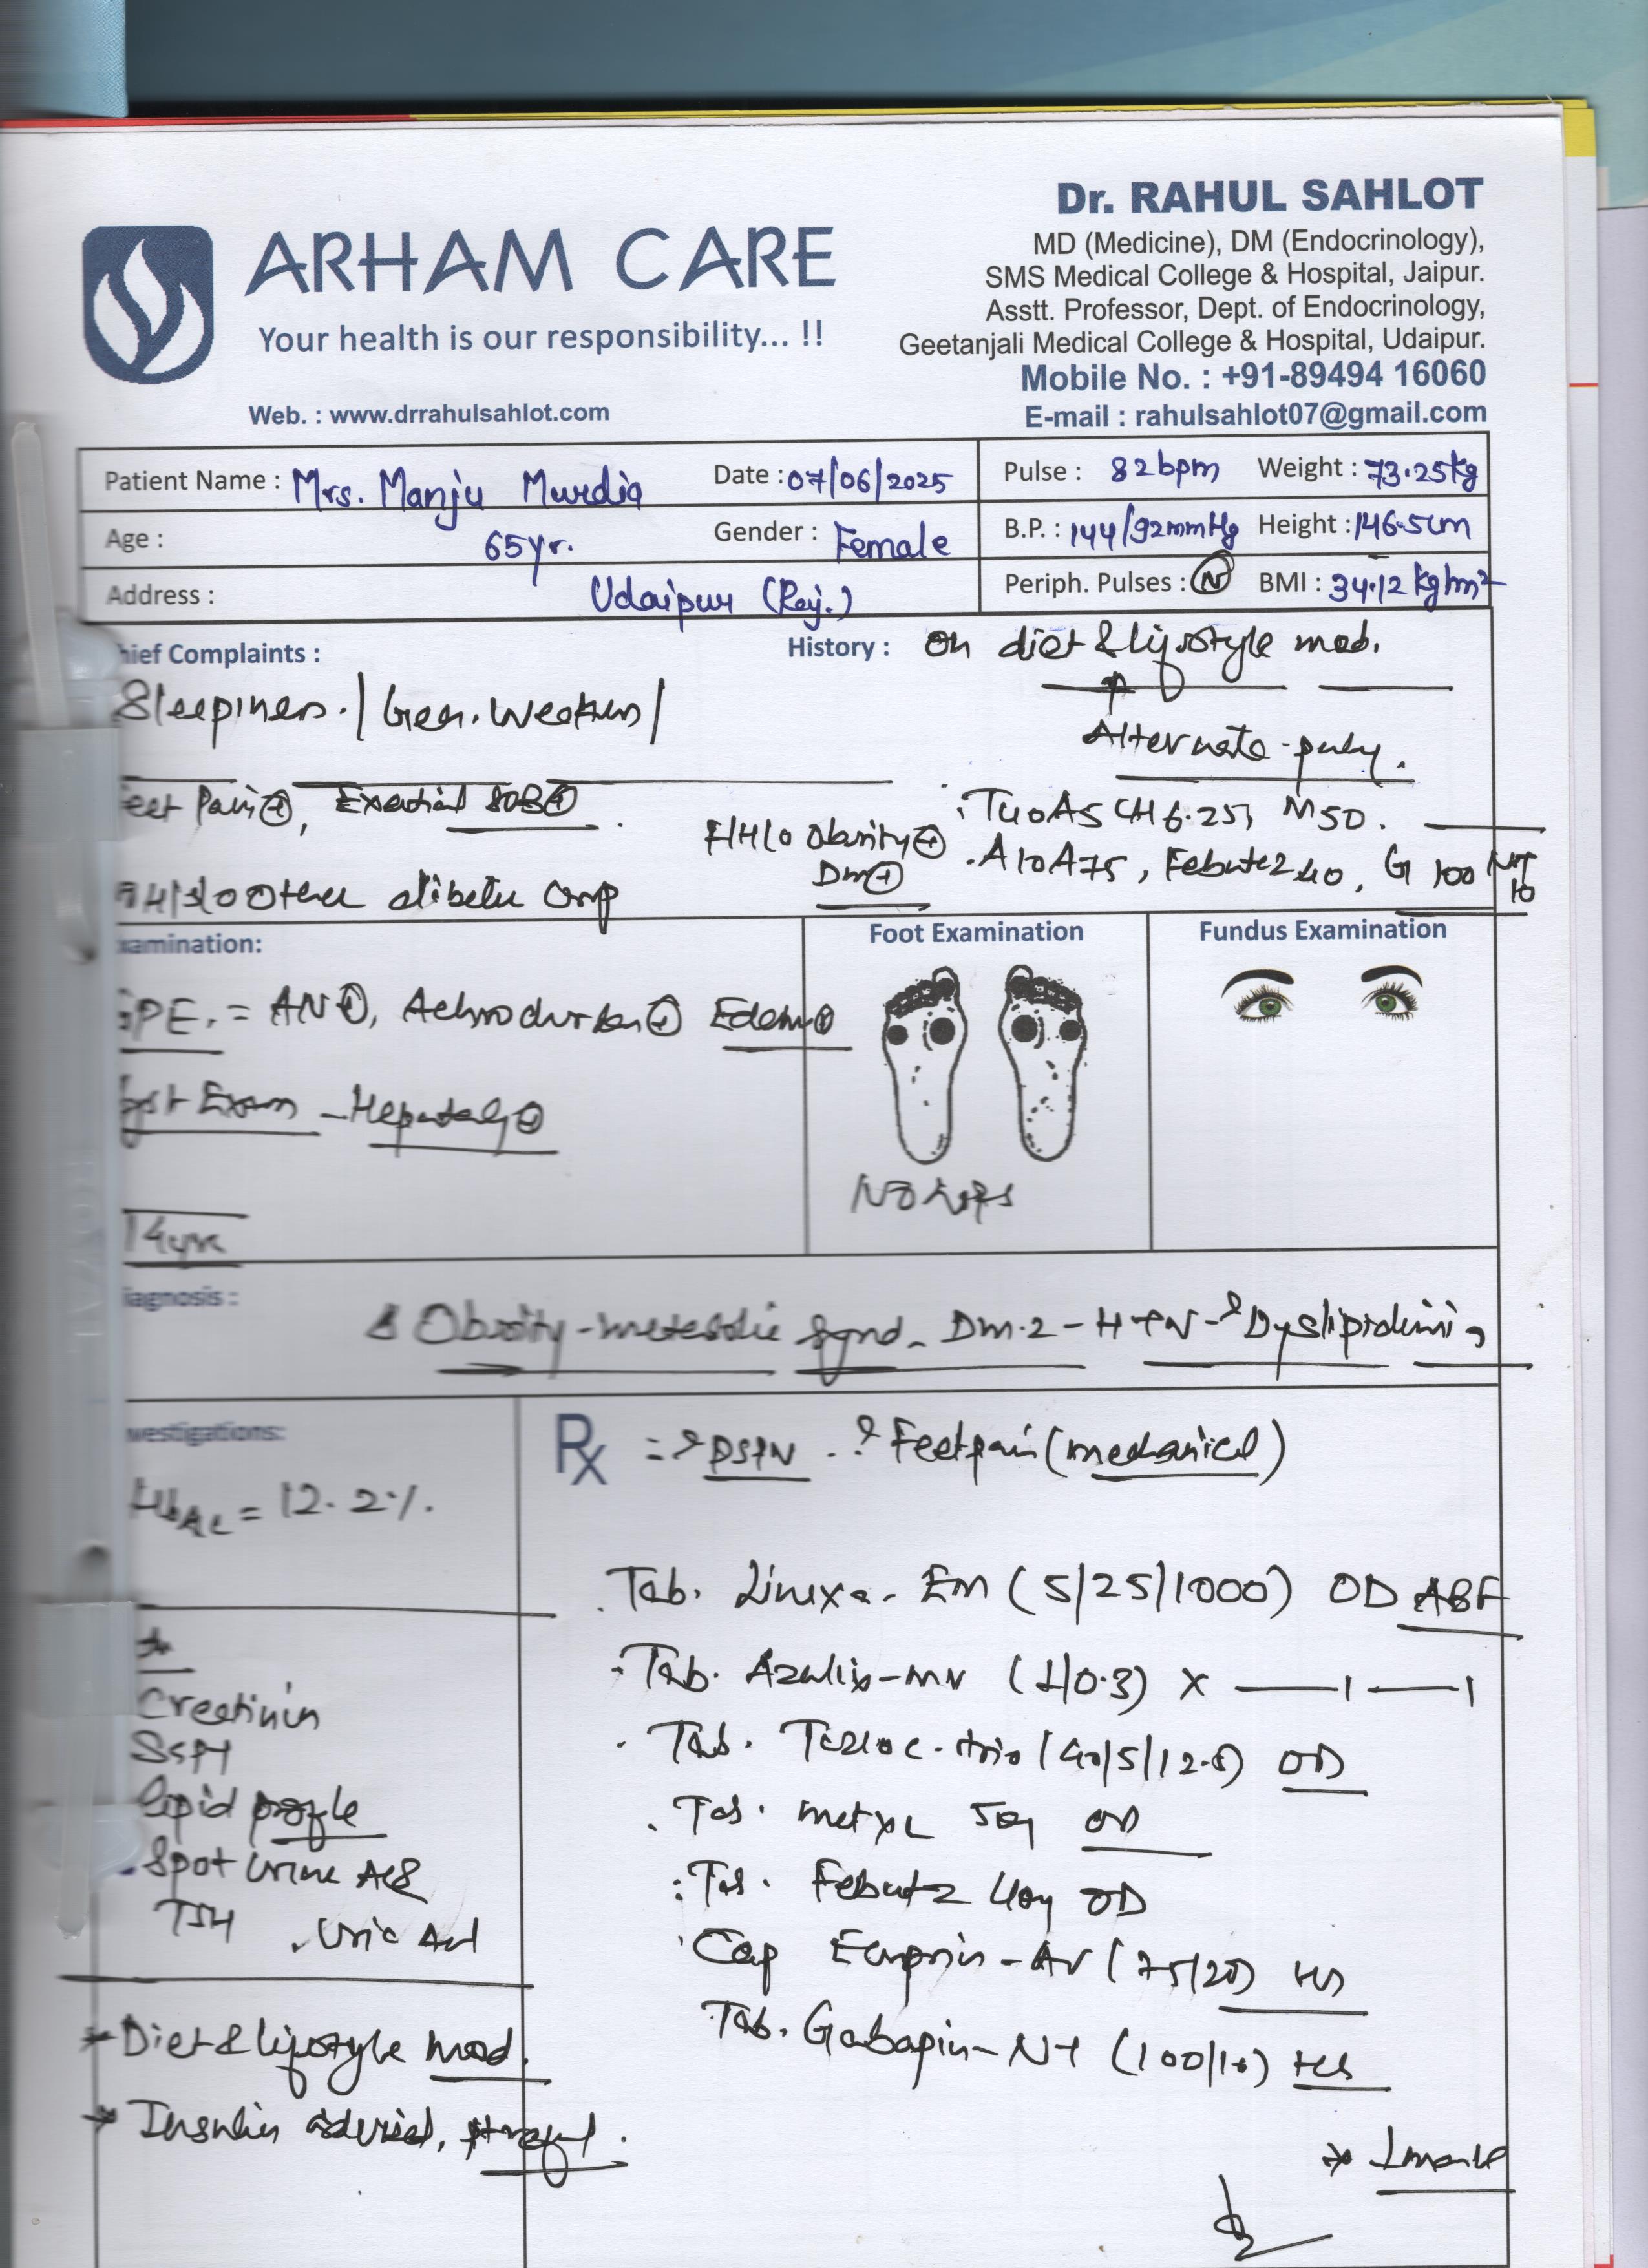 Dr. RAHUL SAHLOT
MD (Medicine), DM (Endocrinology),
SMS Medical College & Hospital, Jaipur.
Asstt. Professor, Dept. of Endocrinology,
Geetanjali Medical College & Hospital, Udaipur.
Mobile No. : +91-89494 16060
E-mail : rahulsahlot07@gmail.com
ARHAM CARE
Your health is our responsibility... !!
Web. : www.drrahulsahlot.com
Patient Name : Mrs. Manju Murdia Date : 07/06/2025 Pulse : 82bpm Weight : 73.25kg
Age : 65yr. Gender : Female B.P. : 144/92mmHg Height : 146.5cm
Address : Udaipur (Raj.) Periph. Pulses : N BMI : 34.12 kg/m2
hief Complaints :
History : On diet & lifestyle mod.
Sleepiness. / Gen. Weakness /
Alternate
eet Pain +, Exertional SOB +
T40A5 CH 6.25, M50.
F/H/o Obesity +
DM +
A10A75, Febutaz 40, G 100 NT 10
other diabetic comp
amination:
Foot Examination
Fundus Examination
GPE. = AN +, Edema +
yst Exam -
14yrs
iagnosis :
Obesity - metabolic Synd - Dm.2 - HTN - ? Dyslipidemia
vestigations:
Rx = ? DSPN . ? Feet pain (mechanical)
HbA1c = 12.2%.
Tab. Linaxa - EM (5/25/1000) OD ABF
Tab. Azulix-MV (1/0.3) x —1—1
Creatinin
Tab. Tazloc-trio (40/5/12.5) OD
lipid profile
Tab. Metxl 50 OD
Spot Urine ACR
Tab. Febutaz 40 OD
TSH . Uric Acid
Cap Ecosprin-AV (75/20) HS
Tab. Gabapin-NT (100/10) HS
Diet & lifestyle mod.
Insulin advised,